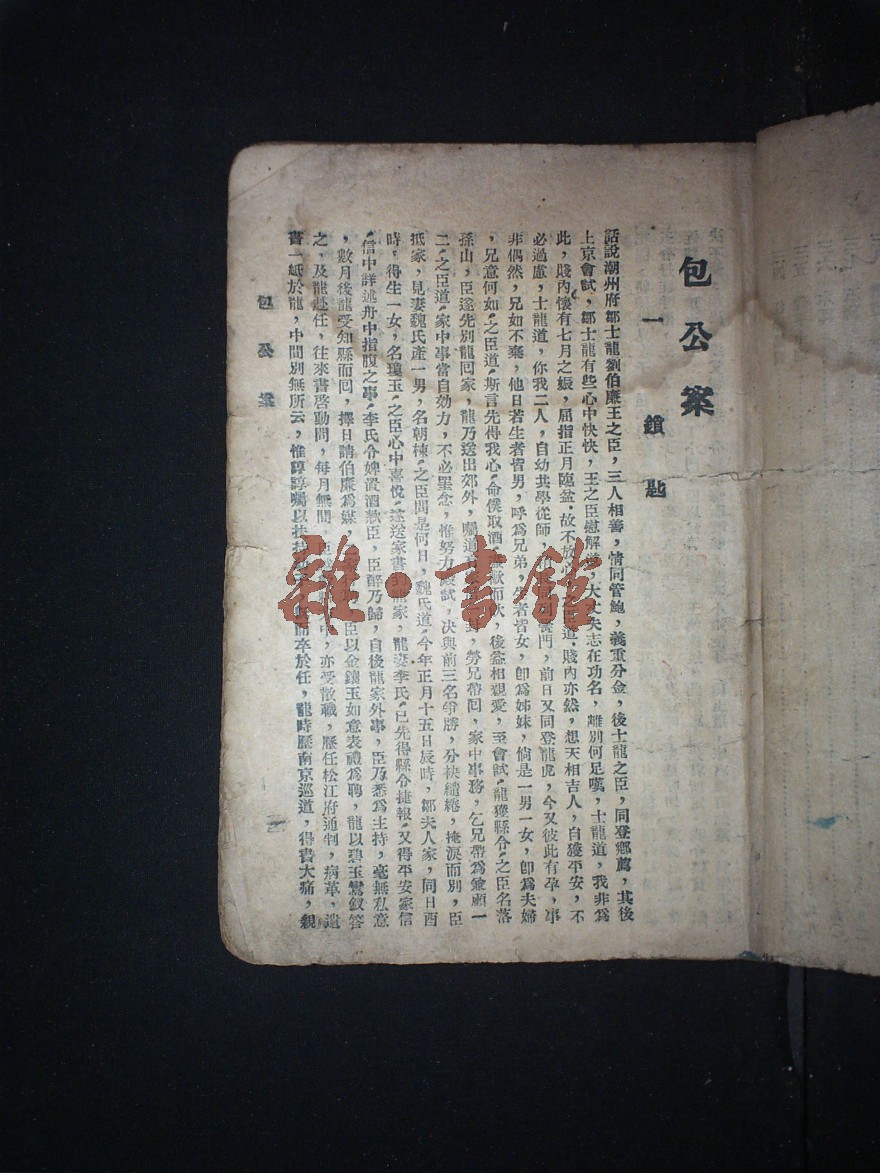 包公案
一 鎖匙
話說潮州府鄒士龍劉伯廉王之臣，三人相善，情同管鮑，義重分金，後士龍之臣，同登鄉薦，其後
上京會試，鄒士龍有些心中怏怏，王之臣慰解道，大丈夫志在功名，離別何足嘆，士龍道，我非為
此，賤內懷有七月之娠，屈指正月臨盆，故不放心，道，賤內亦然，想天相吉人，自獲平安，不
必過慮，士龍道，你我二人，自幼共學從師，門，前日又同登龍虎，今又彼此有孕，事
非偶然，兄如不棄，他日若生者皆男，呼為兄弟，生者皆女，卽為姊妹，倘是一男一女，卽為夫婦
，兄意何如，之臣道，斯言先得我心，命僕取酒，而飲，後益相親愛，至會試，龍獲縣令，之臣名落
孫山，臣遂先別龍回家，龍乃送出郊外，囑道，勞兄帶回，家中事務，乞兄帶為兼顧一
二，之臣道，家中事當自効力，不必罣念，惟努力殿試，决與前三名爭勝，分袂繾綣，掩淚而別，臣
抵家，見妻魏氏產一男，名朝棟，之臣問是何日，魏氏道，今年正月十五日辰時，鄒夫人家，同日酉
時，得生一女，名瓊玉，之臣心中喜悅，遂送家書到龍家，龍妻李氏，已先得縣令捷報，又得平安家信
，信中詳述舟中指腹之事，李氏令婢設酒欵臣，臣醉乃歸，自後龍家外事，臣乃悉為主持，毫無私意
，數月後龍受知縣而回，擇日請伯廉為媒，臣以金鑲玉如意表禮為聘，龍以碧玉鸞釵答
之，及龍赴任，往來書啓動問，每月無間，臣中，亦受散職，歷任松江府通判，病革，遺
書一紙於龍，中間別無所云，惟諄諄囑以扶持，而卒於任，龍時歷南京巡道，得書大痛，親
包公案
一
雜·書館